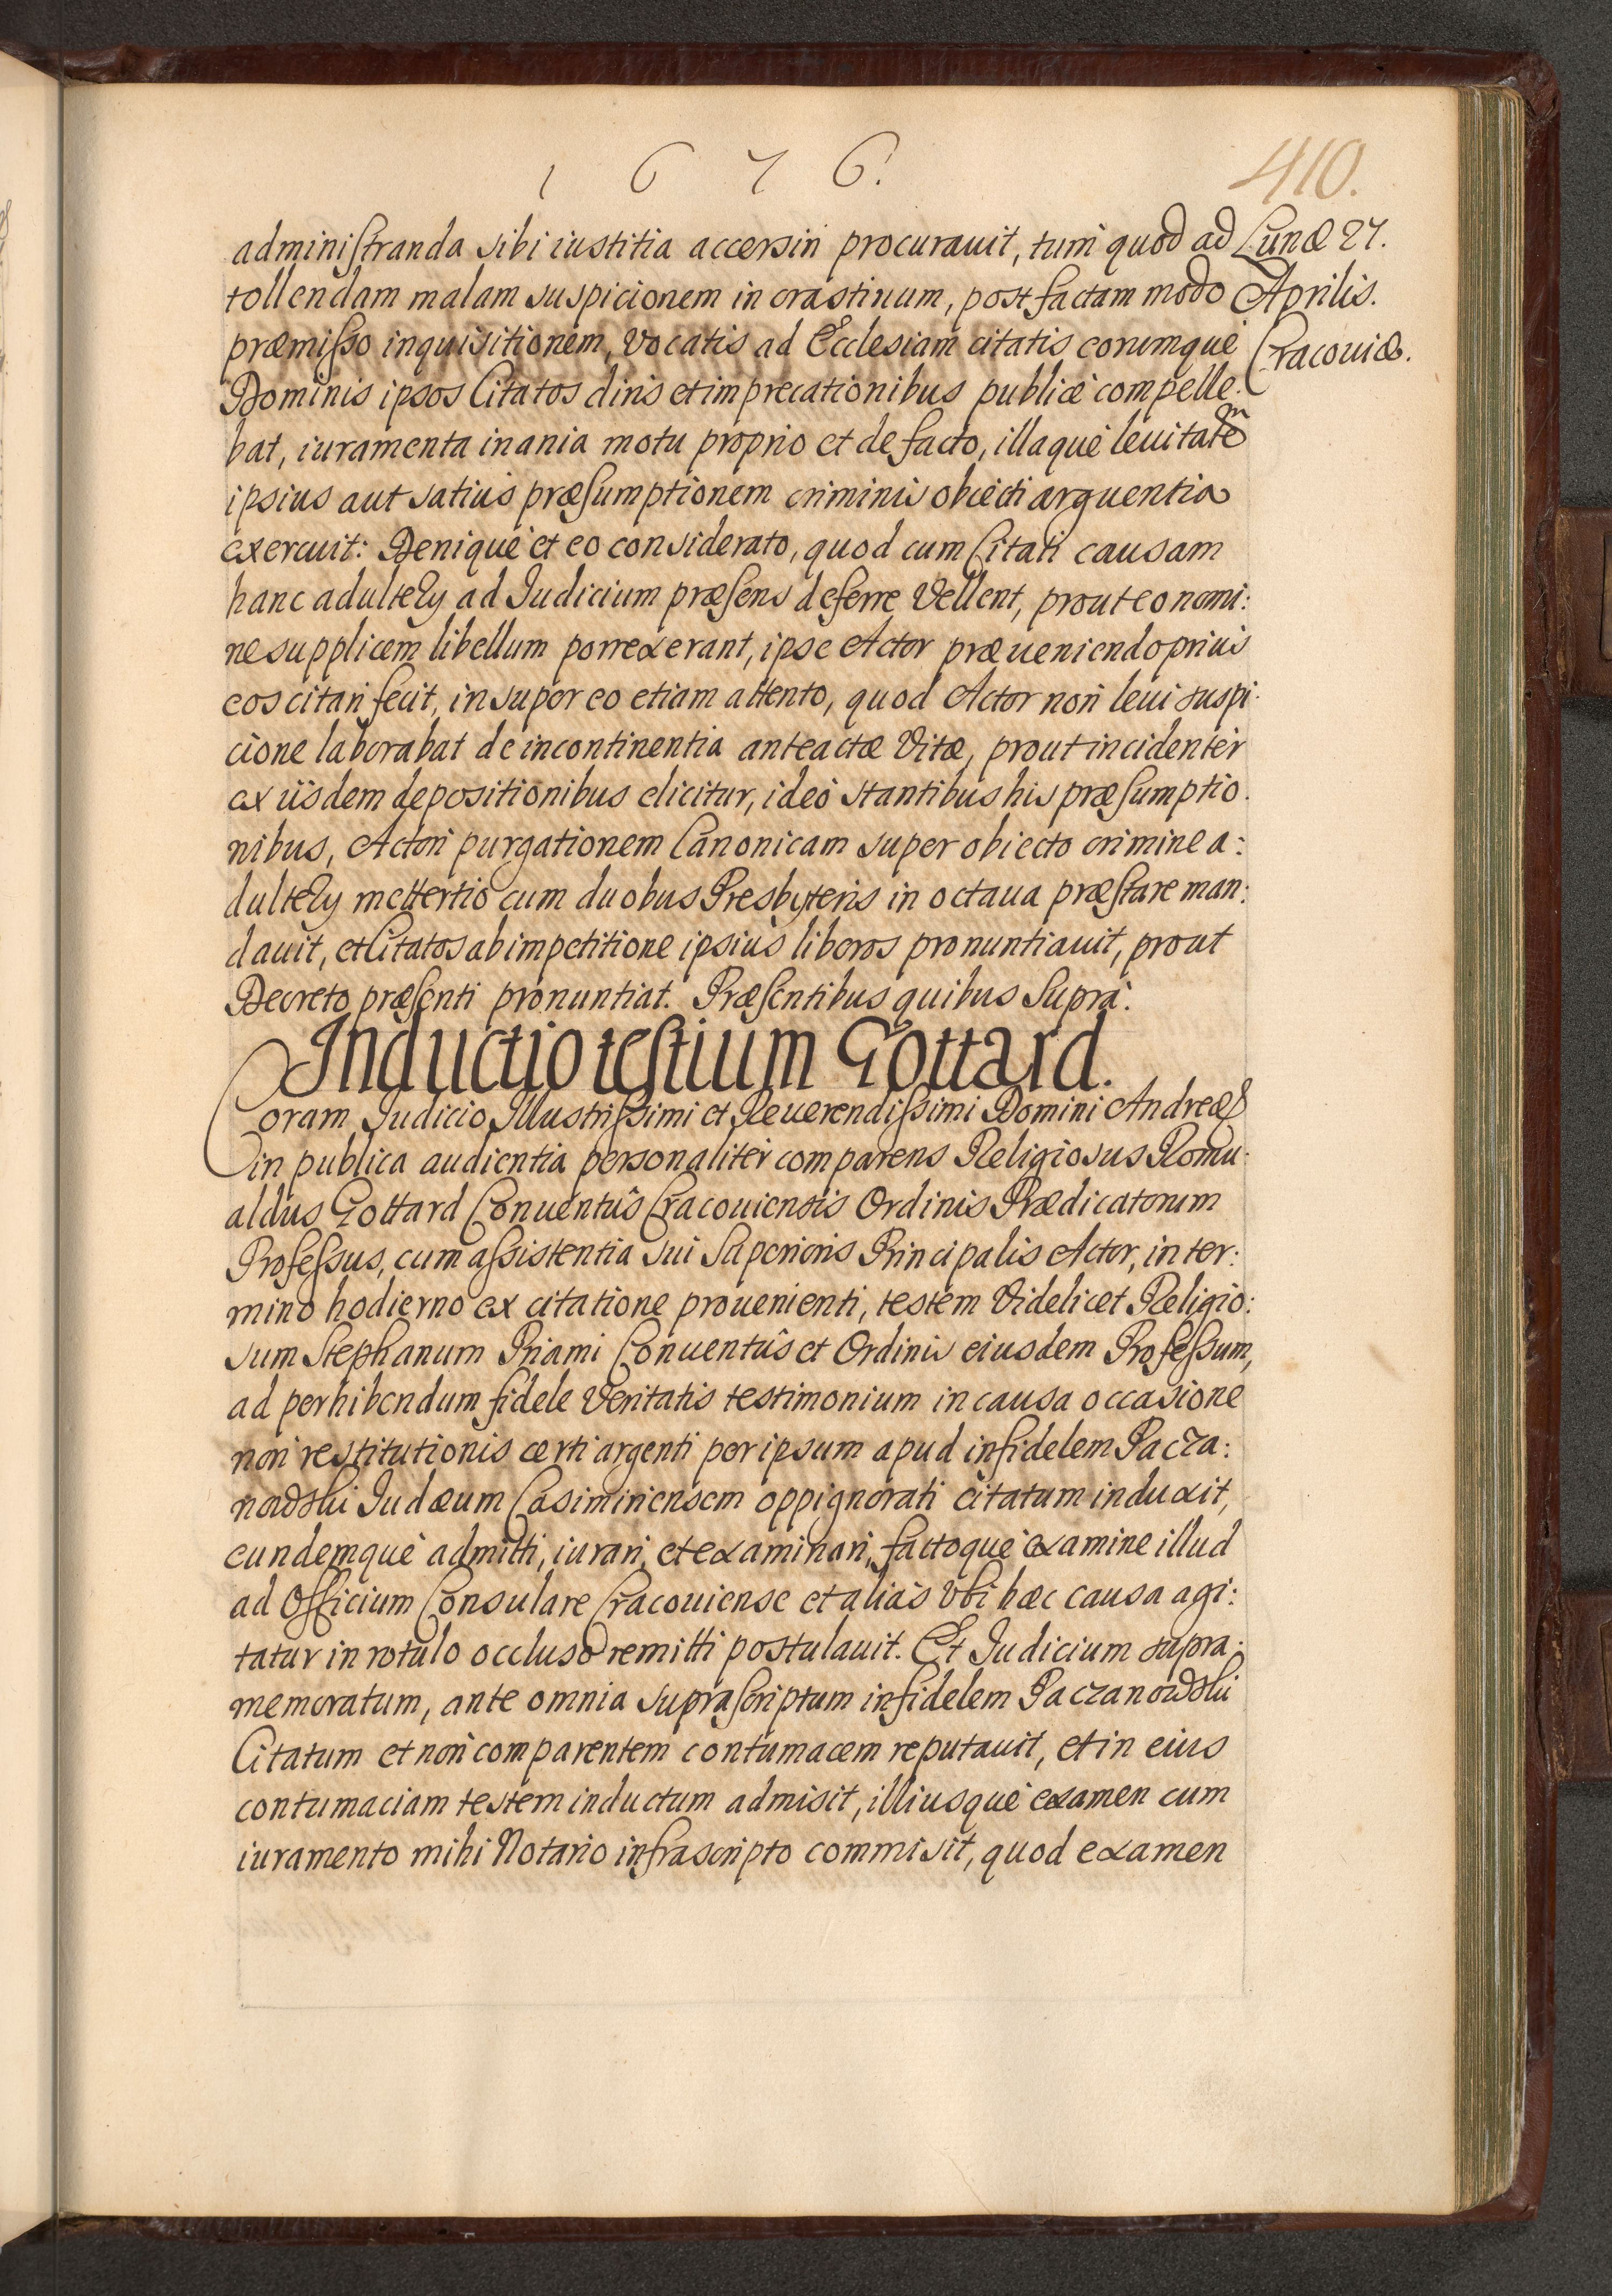 1 6 7 6.
410.
administranda sibi iustitia accersiri procurauit, tum quod ad
tollendam malam suspicionem in crastinum, post factam modo
præmisso inquisitionem, vocatis ad Ecclesiam citatis eorumque
Dominis ipsos Citatos diris et imprecationibus publicè compelle-
bat, iuramenta inania motu proprio et de facto, illaque leuitatẽ
ipsius aut satius præsumptionem criminis obiecti arguentia
exercuit: Denique et eo considerato, quod cum Citati causam
hanc adulterij ad Judicium præsens deferre vellent, prout eo nomi:
ne supplicem libellum porrexerant, ipse Actor præueniendo prius
eos citari fecit, insuper eo etiam attento, quod Actor non leui suspi-
cione laborabat de incontinentia anteactæ vitæ, prout incidenter
ex iisdem depositionibus elicitur, ideò stantibus his præsumptio-
nibus, Actori purgationem Canonicam super obiecto crimine a:
dulterij mettertio cum duobus Presbyteris in octaua præstare man:
dauit, et Citatos ab impetitione ipsius liberos pronuntiauit, prout
Decreto præsenti pronuntiat. Præsentibus quibus Supra.
Inductio testium Gottard.
Coram Judicio Illustrissimi et Reuerendissimi Domini Andreæ
in publica audientia personaliter comparens Religiosus Romu-
aldus Gottard Conuentûs Cracouiensis Ordinis Prædicatorum
Professus, cum assistentia sui Superioris Principalis Actor, in ter:
mino hodierno ex citatione prouenienti, testem videlicet Religio:
sum Stephanum Priami Conuentûs et Ordinis eiusdem Professum,
ad perhibendum fidele veritatis testimonium in causa occasione
non restitutionis certi argenti per ipsum apud infidelem Pacza:
nowski Judæum Casimiriensem oppignorati citatum induxit,
eundemque admitti, iurari, et examinari, factoque examine illud
ad Officium Consulare Cracouiense et alias vbi hæc causa agi:
tatur in rotulo occluso remitti postulauit. Et Judicium supra-
memoratum, ante omnia suprascriptum infidelem Paczanowski
Citatum et non comparentem contumacem reputauit, et in eius
contumaciam testem inductum admisit, illiusque examen cum
iuramento mihi Notario infrascripto commisit, quod examen
Lunæ 27.
Aprilis.
Cracouiæ.